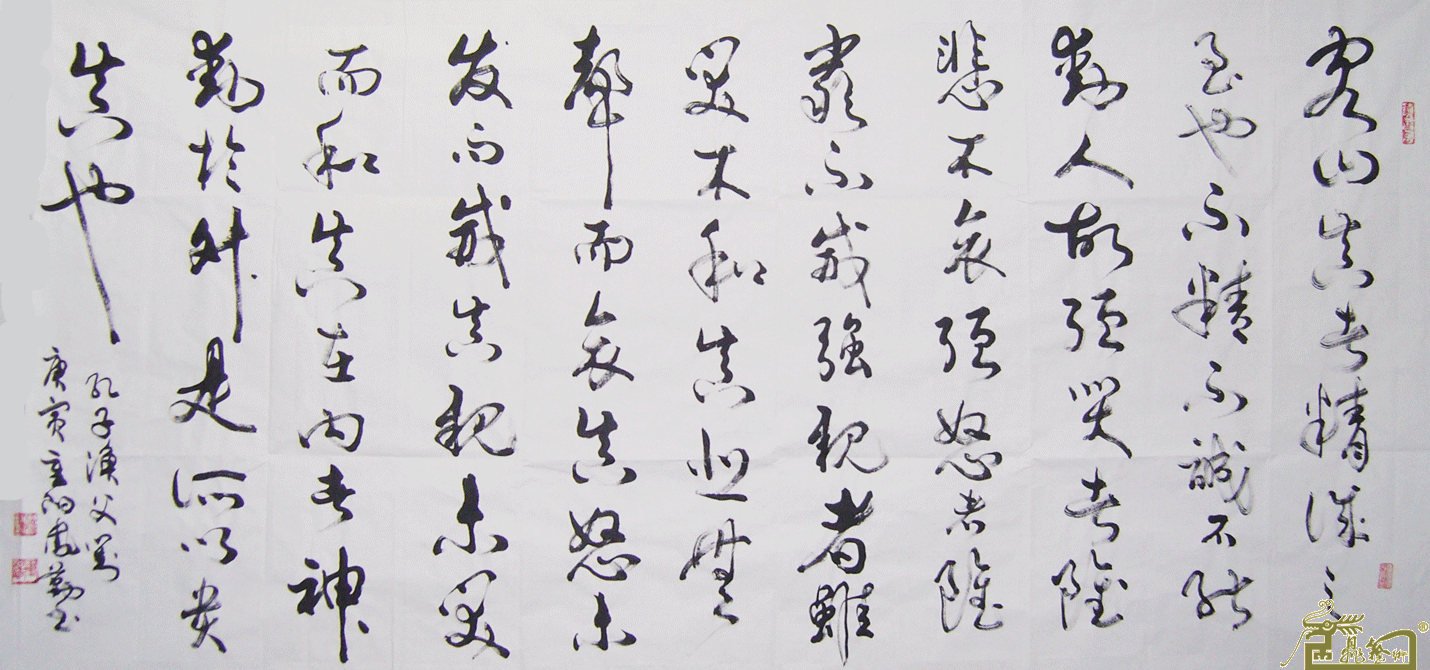 客曰真者精誠之
至也不精不誠不能
動人故强哭者雖
悲不哀强怒者雖
嚴不威强親者雖
笑不和真悲無
聲而哀真怒未
发而威真親未笑
而和真在内者神
動於外是所以貴
真也
孔子漁父篇
庚寅